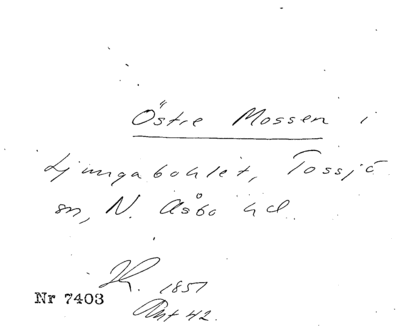 Östre Mossen i
Ljungabohlet, Tossjö
sn, N. Åsbo hd.
1851
Nr 7403
Akt 42.